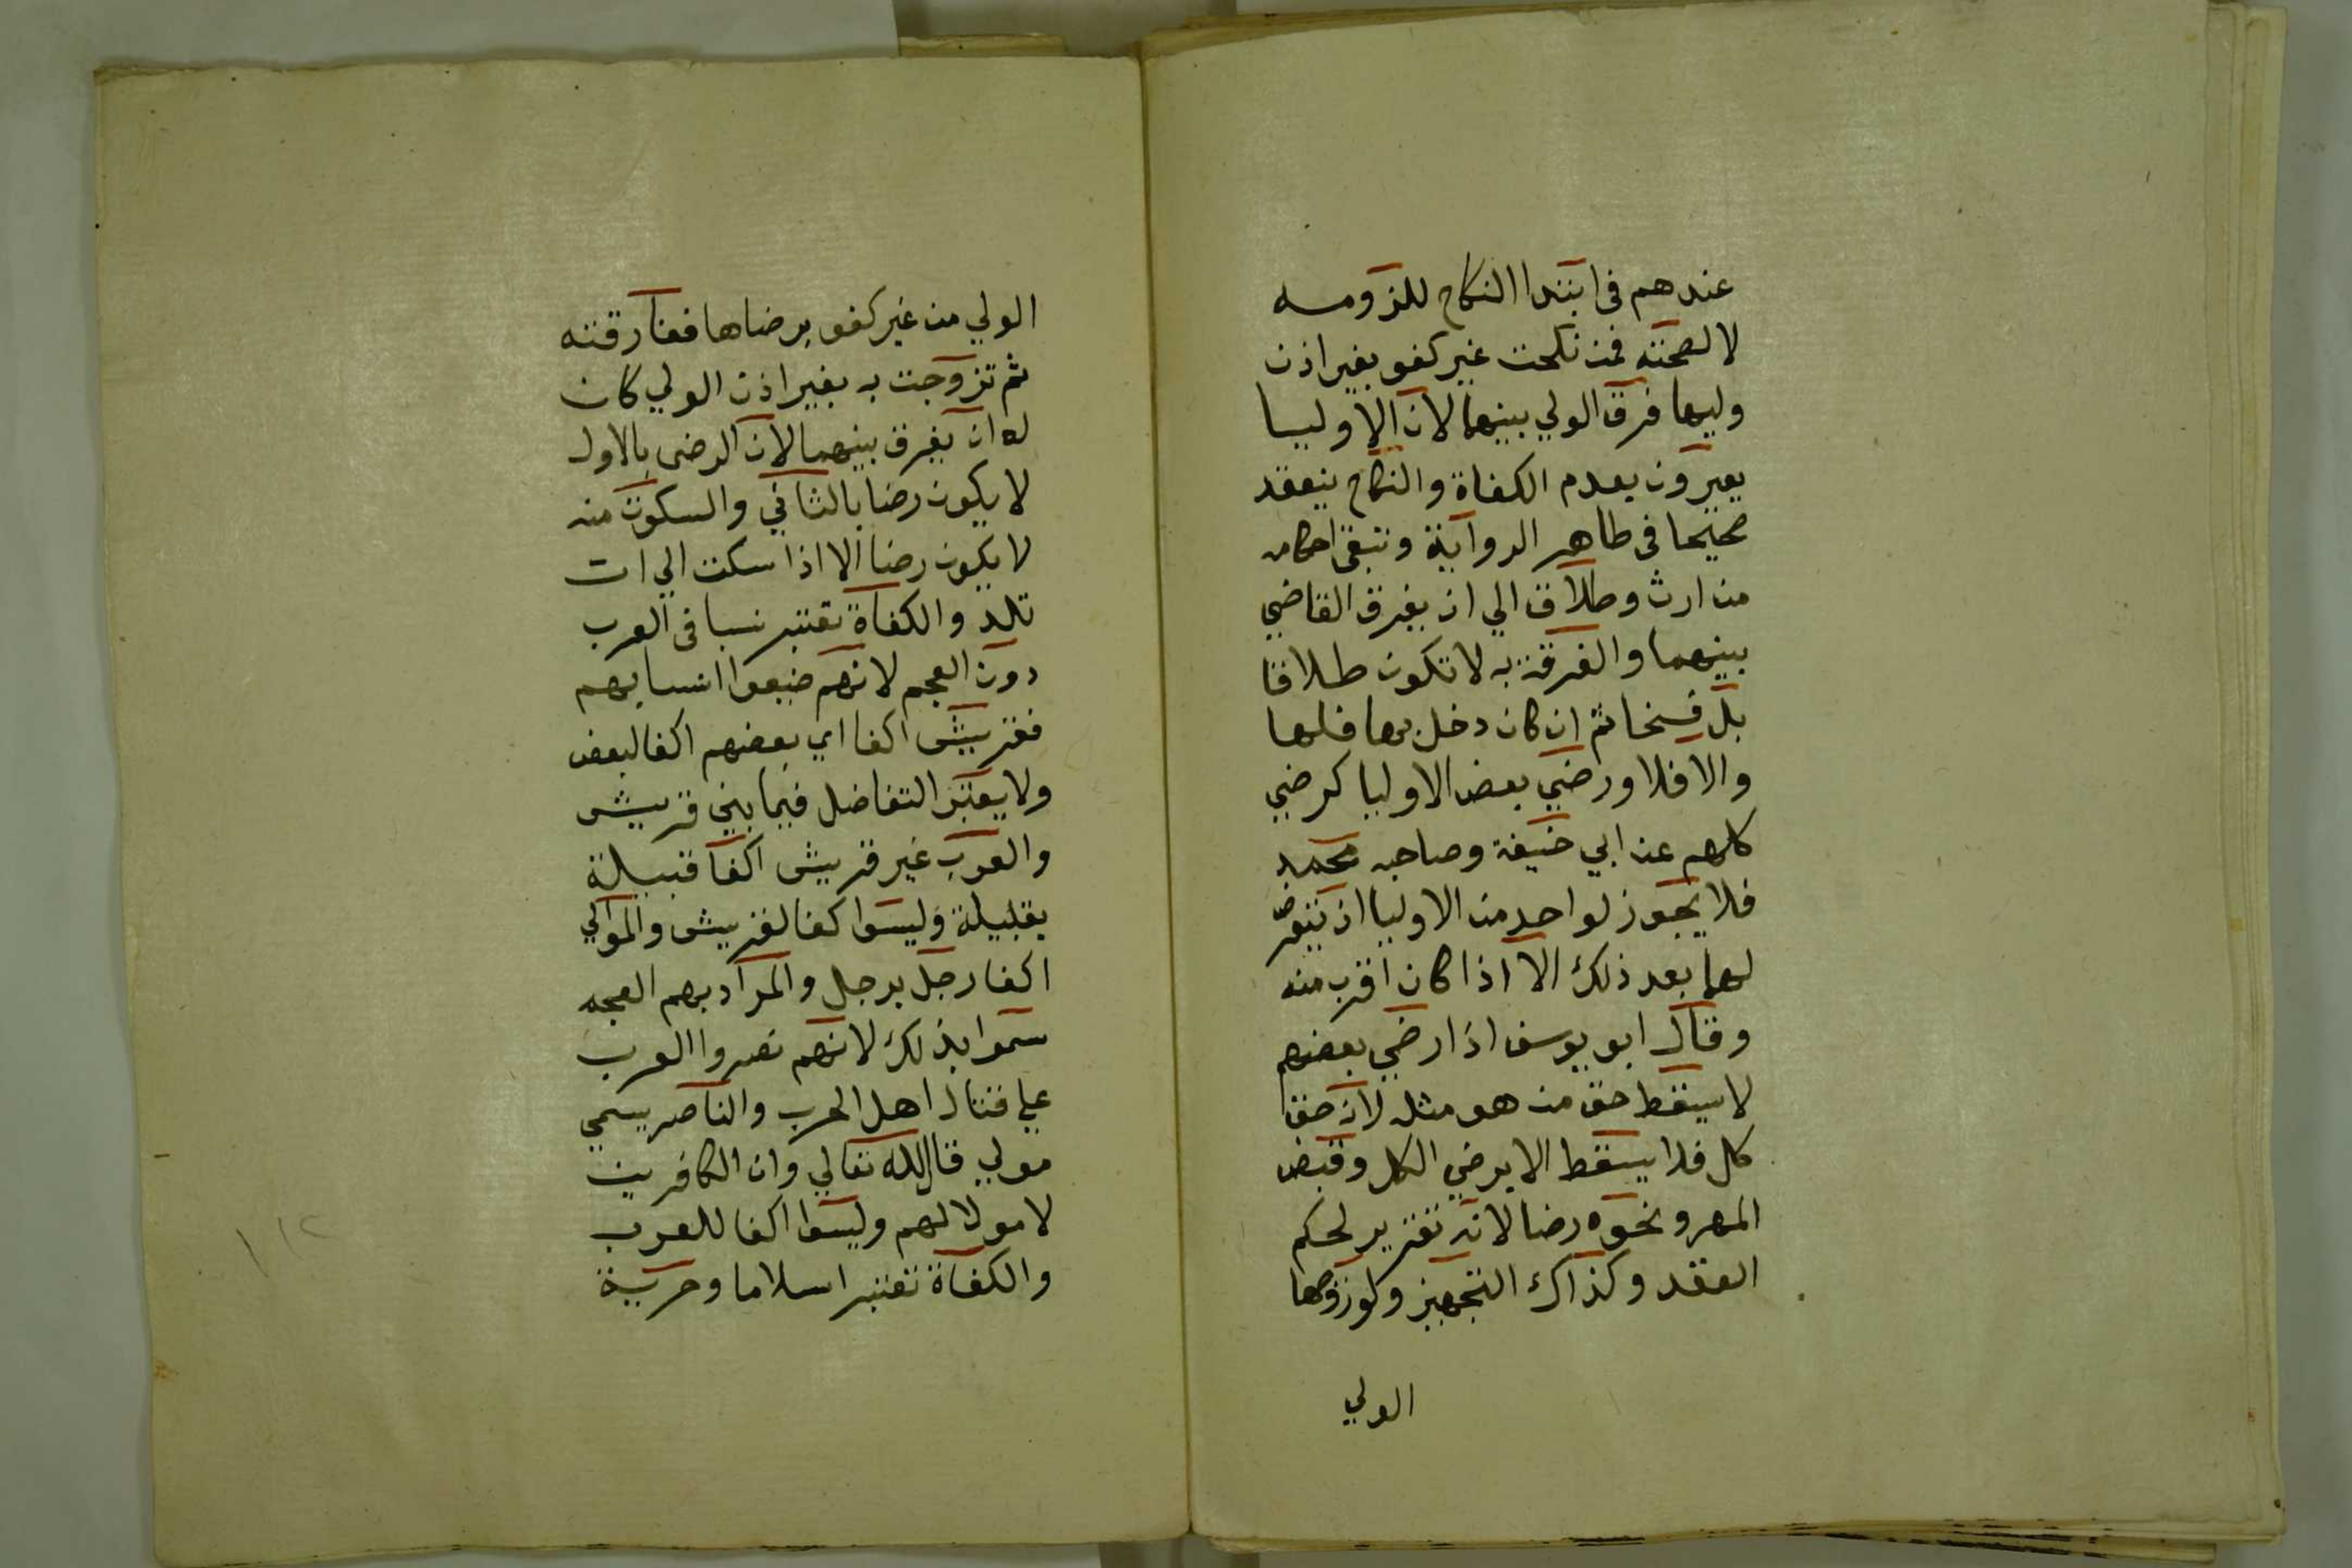 عندهم فى ابتدا النكاح للزومه
لا لصحته فمن نكحت غير كفو بغير اذن
وليها فرق الولي بينهما لان الاوليا
يعيرون بعدم الكفاة والنكاح ينعقد
صحيحا فى ظاهر الرواية وتبقى احكامه
من ارث وطلاق الي ان يفرق القاضي
بينهما والفرقة به لا تكون طلاقا
بل فسخا ثم ان كان دخل بها فلها
والا فلا ورضي بعض الاوليا كرضي
كلهم عند ابي حنيفة وصاحبه محمد
فلا يجوز لواحد من الاوليا ان يتعرض
لهما بعد ذلك الا اذا كان اقرب منه
وقال ابو يوسف اذا رضي بعضهم
لا يسقط حق من هو مثله لانه حق
كل فلا يسقط الا برضي الكل وقبض
المهر ونحوه رضا لانه تقرير لحكم
العقد وكذاك التجهيز ولو زوجها
الولي
الولي من غير كفو برضاها ففارقته
ثم تزوجت به بغير اذن الولي كان
له ان يفرق بينهما لان الرضى بالاول
لا يكون رضا بالثاني والسكوت منه
لا يكون رضا الا اذا سكت الي ان
تلد والكفاة تعتبر نسبا فى العرب
دون العجم لانهم ضيعوا انسابهم
فقريش اكفا اي بعضهم اكفا لبعض
ولا يعتبر التفاضل فيما بين قريش
والعرب غير قريش اكفا قبيلة
بقبيلة وليسوا كفا لقريش والموالي
اكفا رجل برجل والمراد بهم العجم
سموا بذلك لانهم نصروا العرب
علي قتال اهل الحرب والناصر يسمي
مولي قال الله تعالي وان الكافرين
لا مولا لهم وليسوا اكفا للعرب
والكفاة تعتبر اسلاما وحرية
١١٢